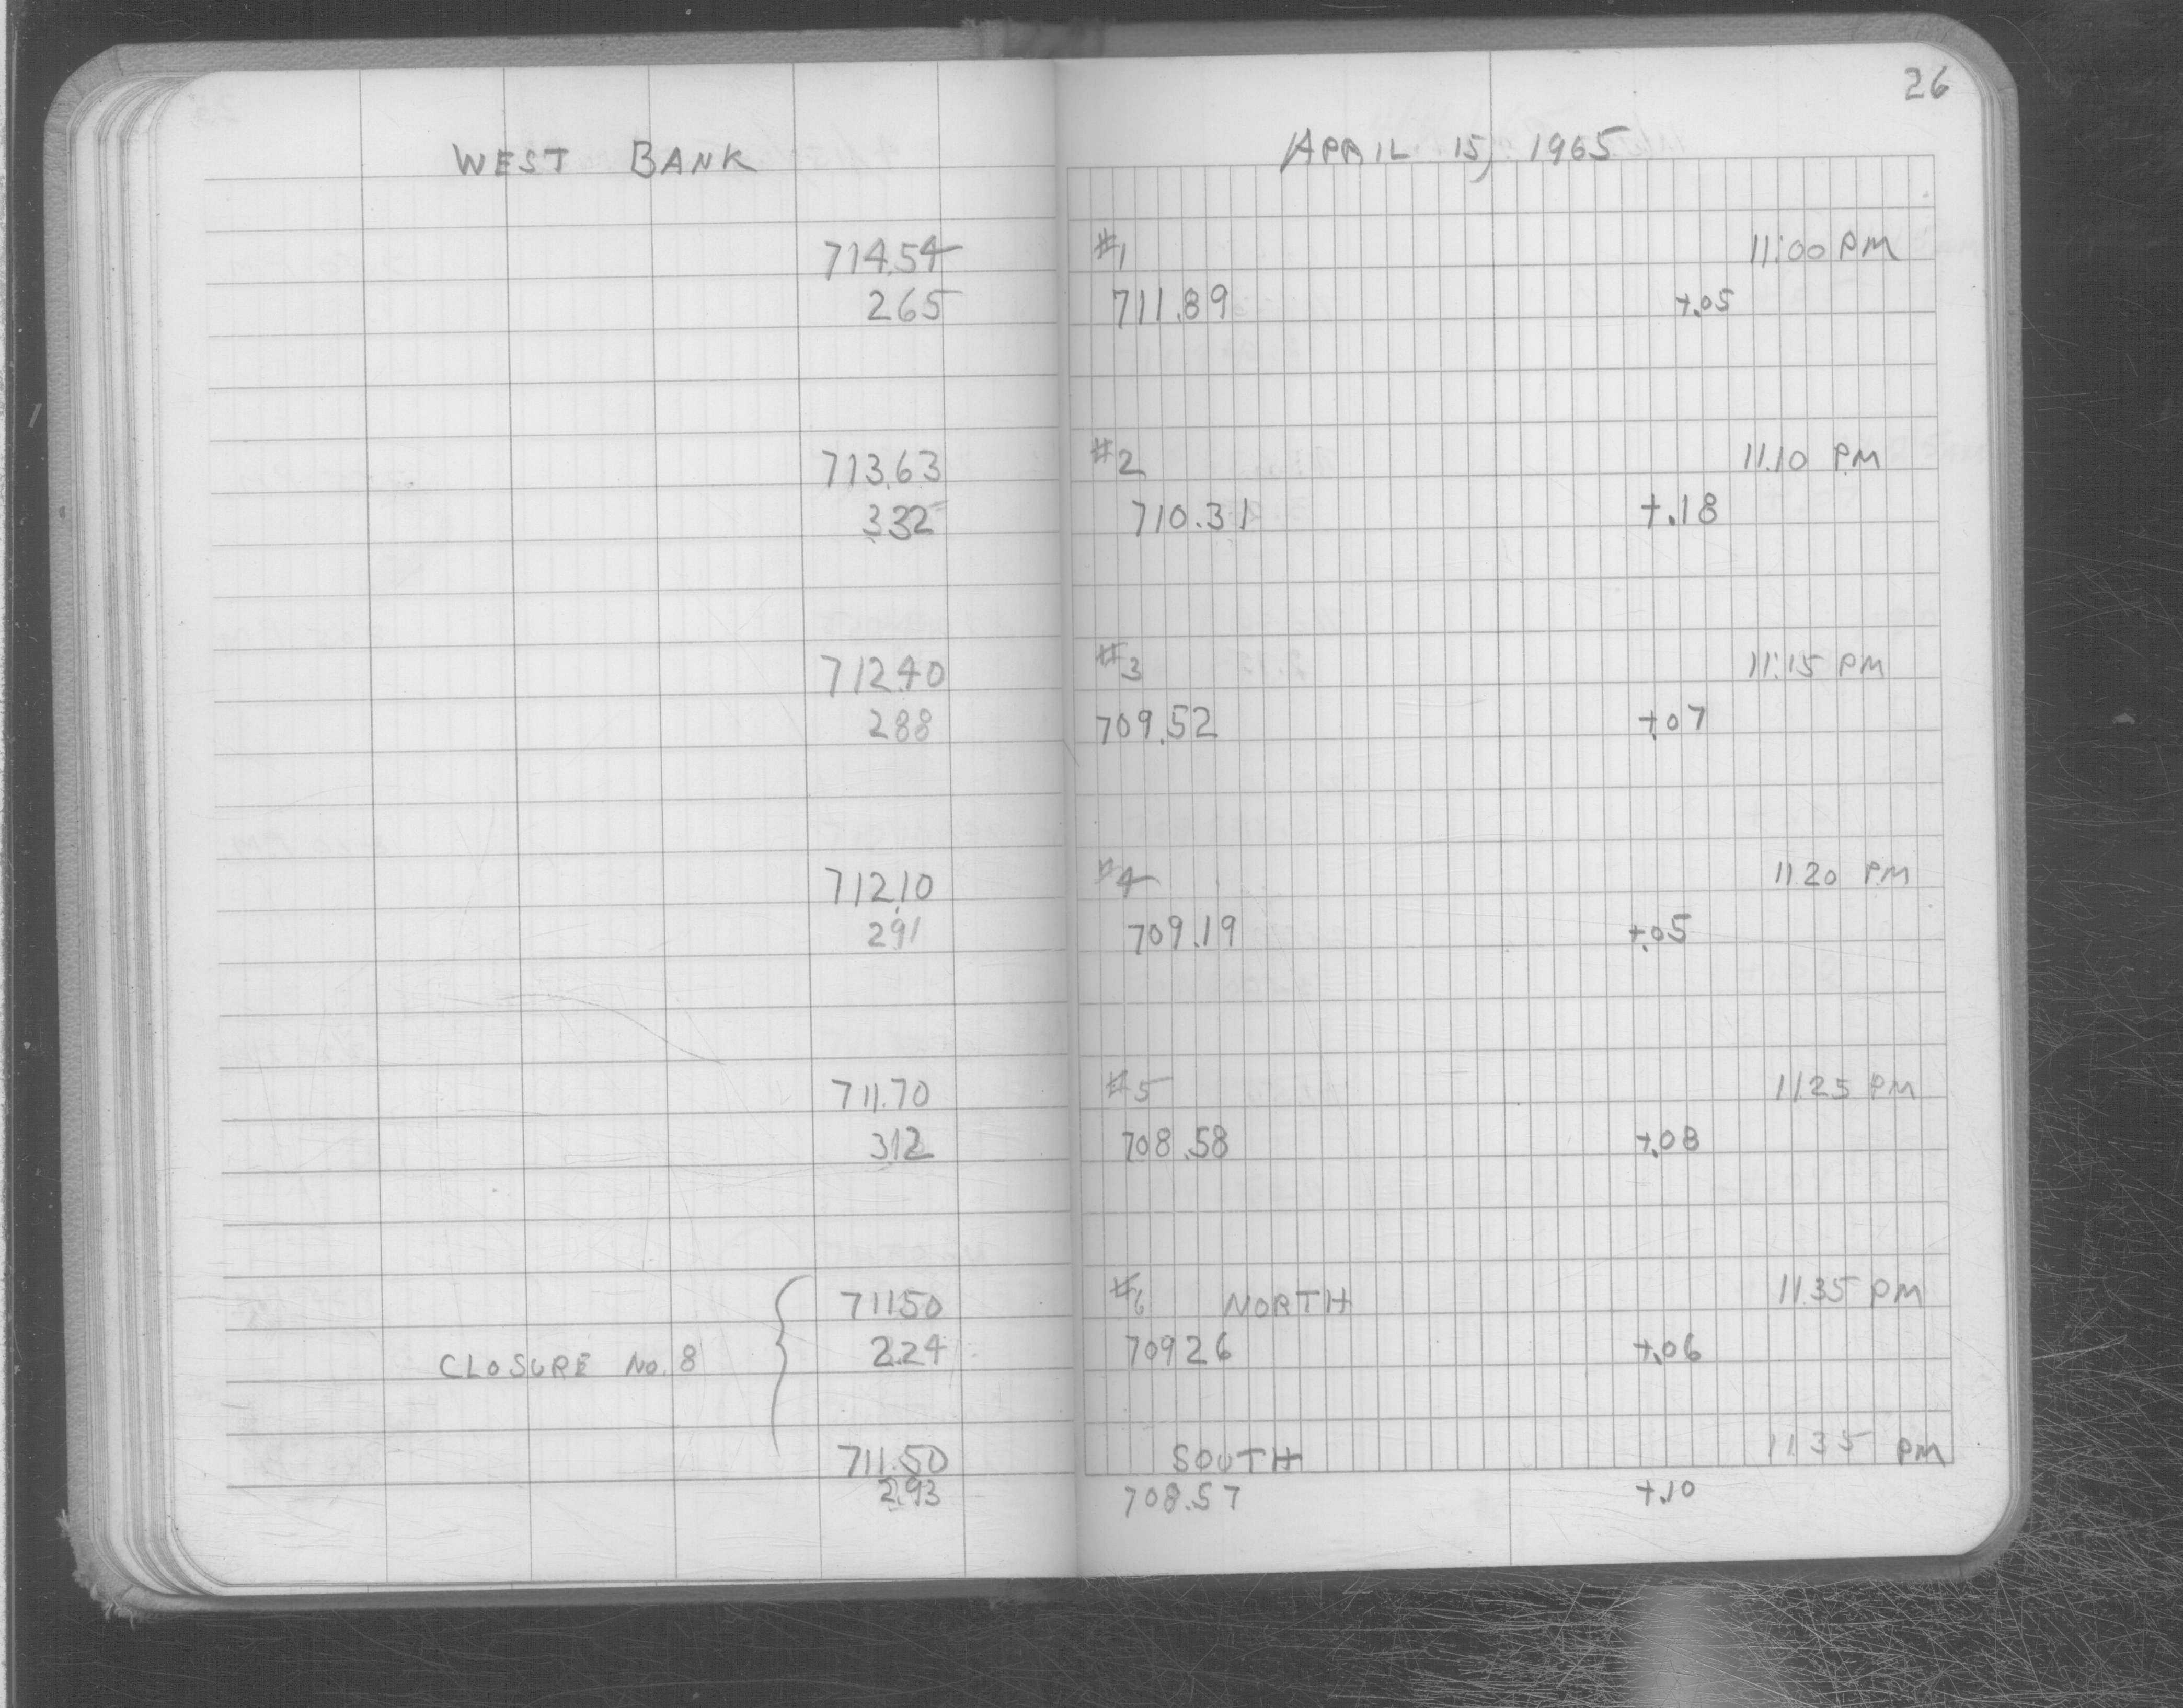 26
WEST BANK APRIL 15, 1965
714.54 #1 11:00 PM
265 711.89 +.05
713.63 #2 11.10 PM
3.32 710.31 +.18
712.40 #3 11:15 PM
288 709.52 +.07
712.10 #4 11 20 PM
291 709.19 +.05
711.70 #5 11 25 PM
312 708.58 +.08
711.50 #6 NORTH 11 35 PM
CLOSURE NO. 8 2.24 709 26 +.06
711.50 SOUTH 11 35 PM
2.93 708.57 +.10